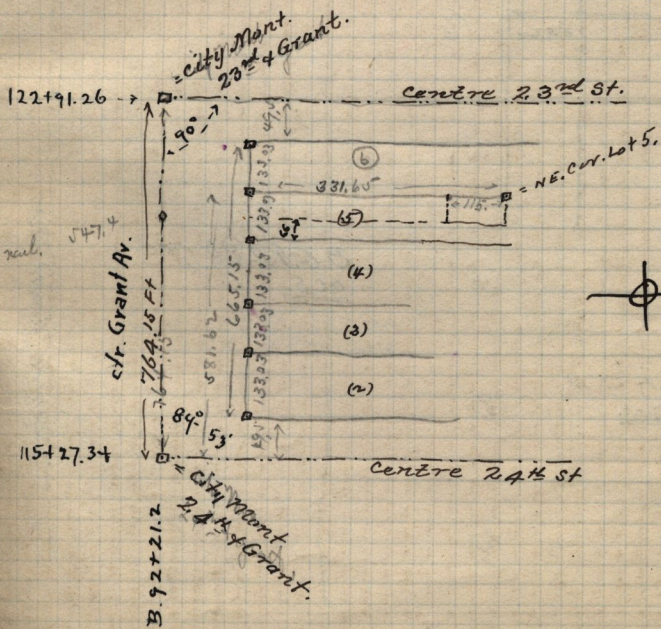 = City Mont.
23rd & Grant.
122+91.26
Centre 23rd St.
90°
49.5
133.03
(6)
331.65
= NE. Cor. Lot 5.
115.
133.03
(5)
547.4
nail.
ctr. Grant Av.
764.15 Ft
581.62
665.15
133.03
(4)
133.03
(3)
133.03
(2)
89° 53'
49.5
115+27.34
Centre 24th St
= City Mont
24th & Grant.
B. 92+21.2